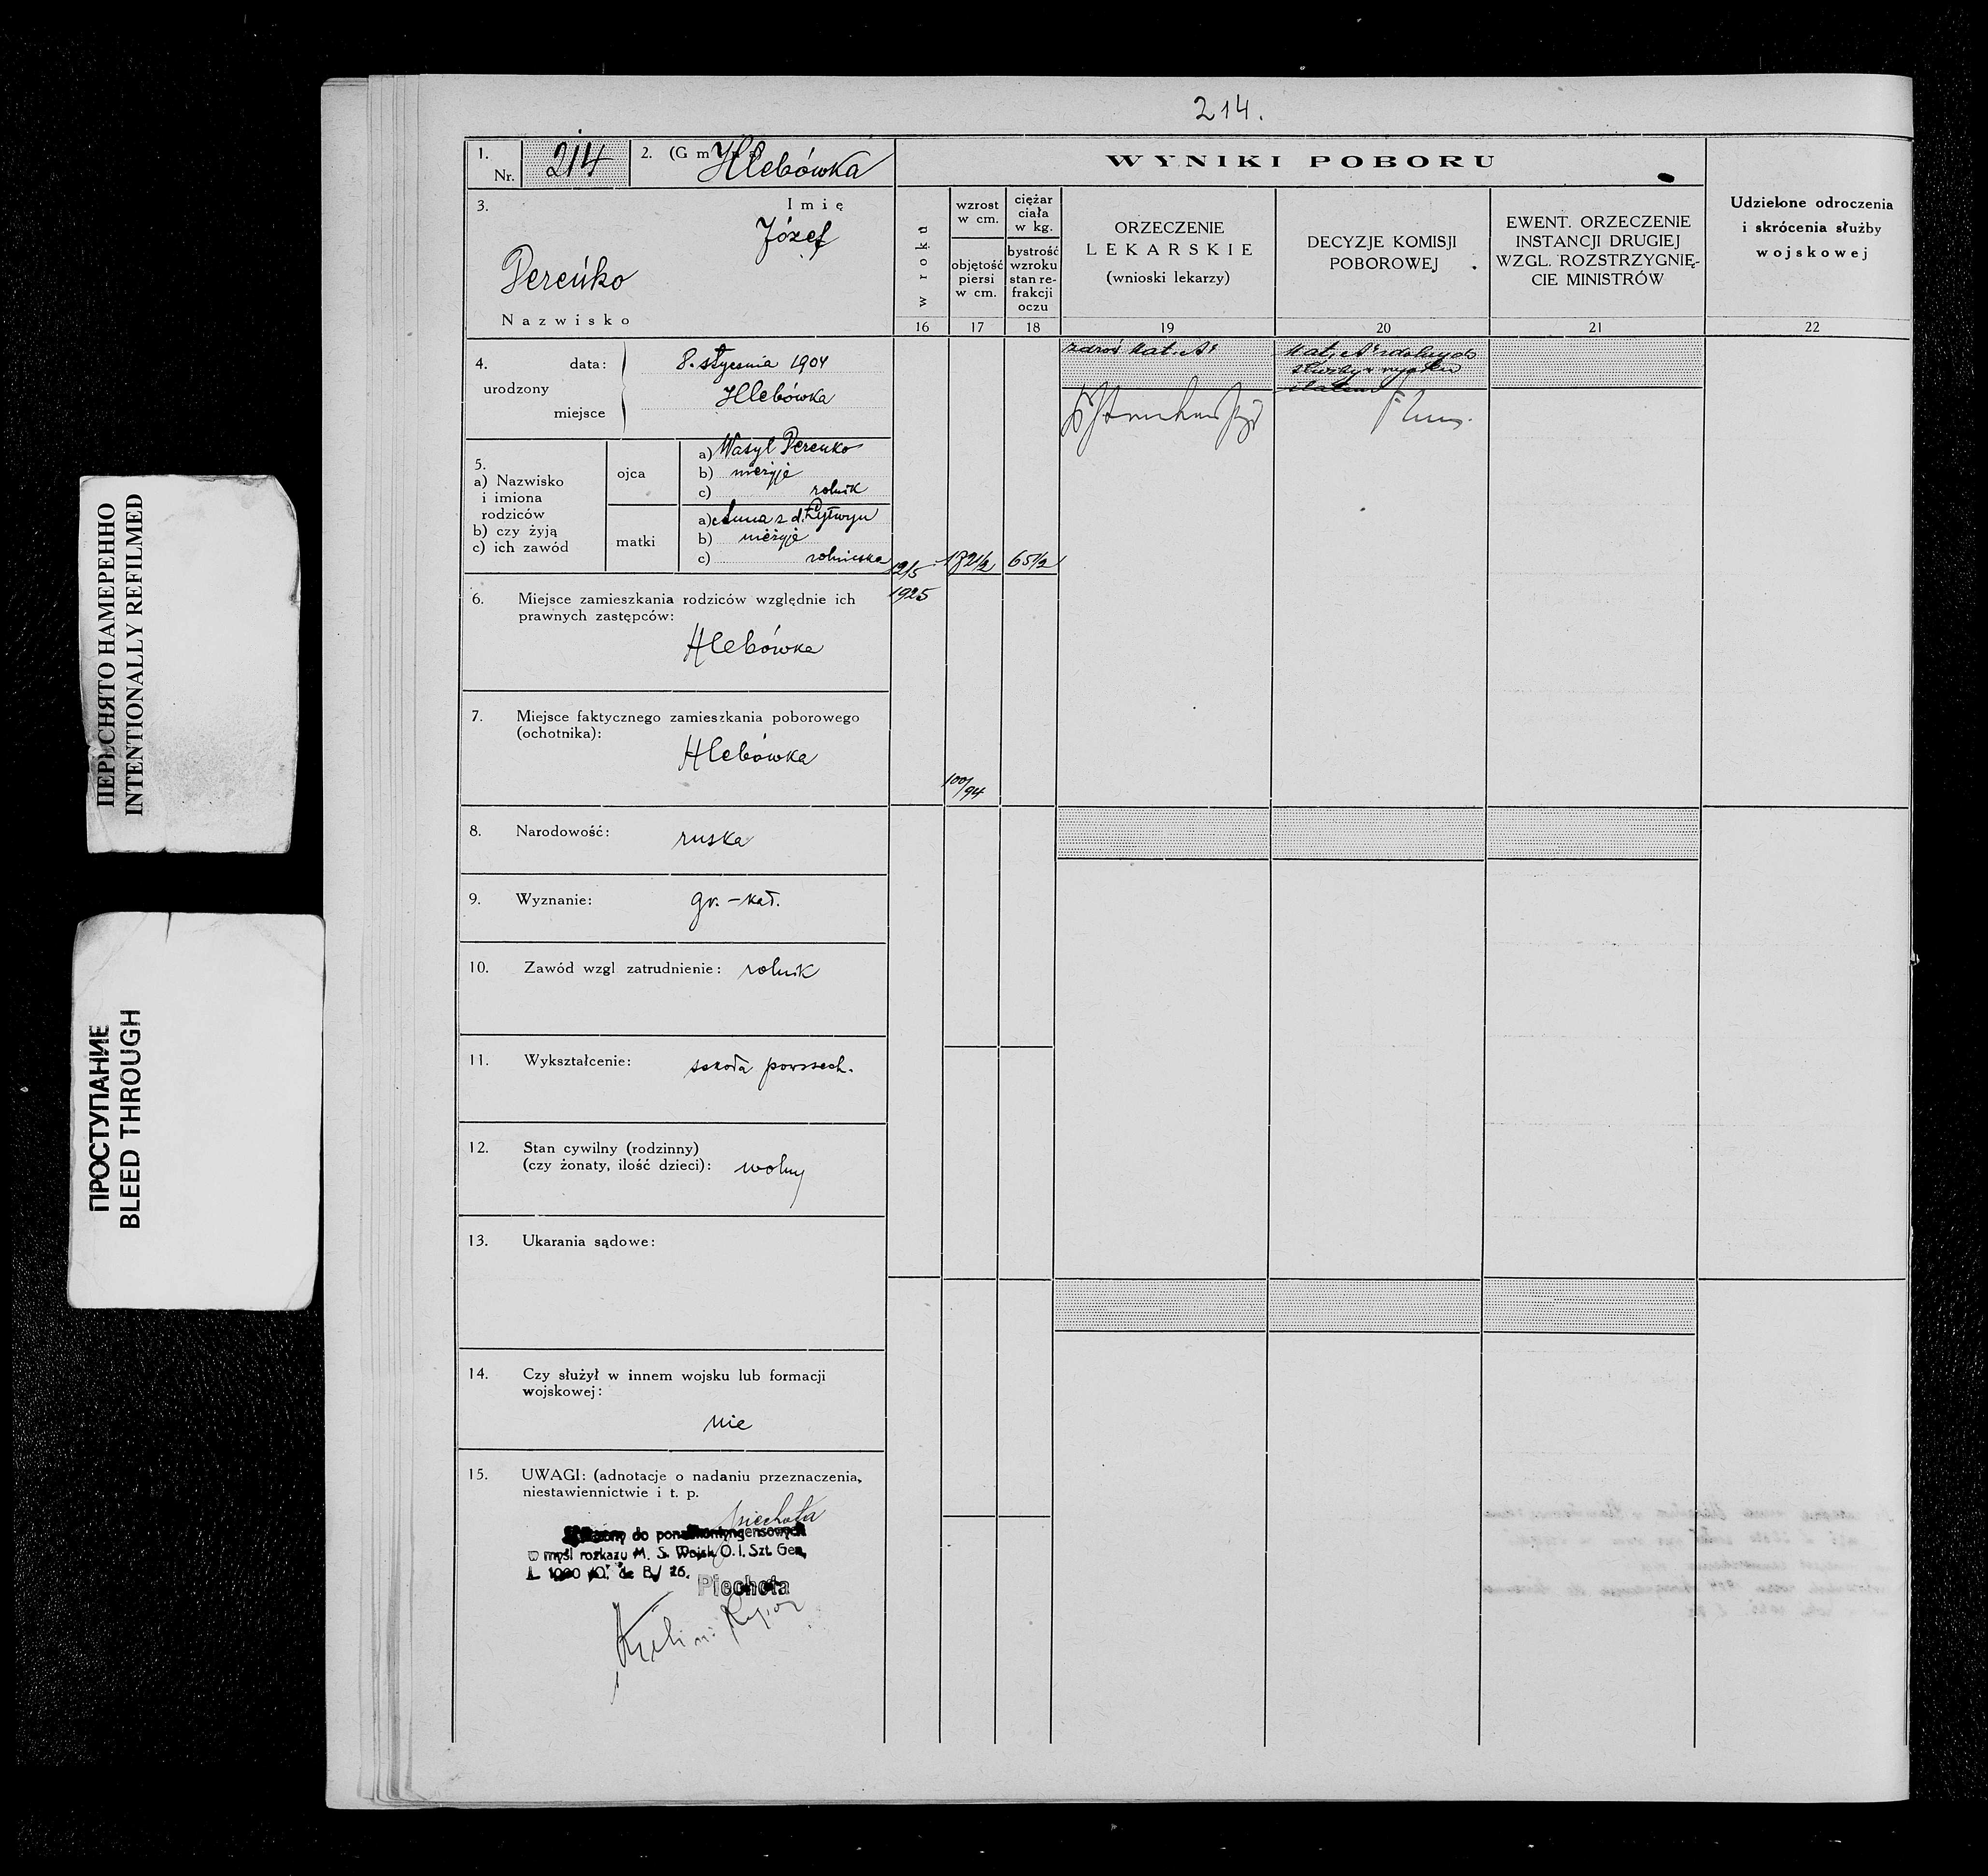 214.
1.
Nr.
214
2. (Gmina)
Hlebówka
WYNIKI POBORU
3.
Imię
Józef
Pereńko
Nazwisko
w roku
wzrost
w cm.
objętość
piersi
w cm.
ciężar
ciała
w kg.
bystrość
wzroku
stan re-
frakcji
oczu
ORZECZENIE
LEKARSKIE
(wnioski lekarzy)
DECYZJE KOMISJI
POBOROWEJ
EWENT. ORZECZENIE
INSTANCJI DRUGIEJ
WZGL. ROZSTRZYGNIĘ-
CIE MINISTRÓW
Udzielone odroczenia
i skrócenia służby
wojskowej
16 17 18 19 20 21 22
4.
urodzony
data: 8. stycznia 1904
miejsce Hlebówka
zdrów kat. A
kat. A zdolny do
służby z
5.
a) Nazwisko
i imiona
rodziców
b) czy żyją
c) ich zawód
ojca
a) Wasyl Perenko
b) nieżyje
c) rolnik
matki
a) Anna z d. Łytwyn
b) nieżyje
c) rolniczka
12/5
1925
172½
65½
6. Miejsce zamieszkania rodziców względnie ich
prawnych zastępców:
Hlebówka
7. Miejsce faktycznego zamieszkania poborowego
(ochotnika):
Hlebówka
100/94
8. Narodowość: ruska
9. Wyznanie: gr.-kat.
10. Zawód wzgl zatrudnienie: rolnik
11. Wykształcenie: szkoła powszech.
12. Stan cywilny (rodzinny)
(czy żonaty, ilość dzieci): wolny
13. Ukarania sądowe:
14. Czy służył w innem wojsku lub formacji
wojskowej:
nie
15. UWAGI: (adnotacje o nadaniu przeznaczenia,
niestawiennictwie i t. p.
piechota
do ponadkontyngensowych
w myśl rozkazu M. S. Wojsk O. I. Szt. Gen.
Piechota
ПЕРЕСНЯТО НАМЕРЕННО
INTENTIONALLY REFILMED
ПРОСТУПАНИЕ
BLEED THROUGH